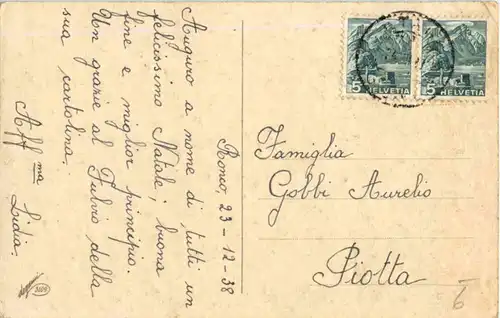 Ronco, 23-12-38
Auguro a nome di tutti un
felicissimo Natale, buona
fine e miglior principio.
Un grazie al Fulvio della
sua cartolina.
Aff ma Lidia.
Famiglia
Gobbi Aurelio
Piotta
5 HELVETIA
5 HELVETIA
6